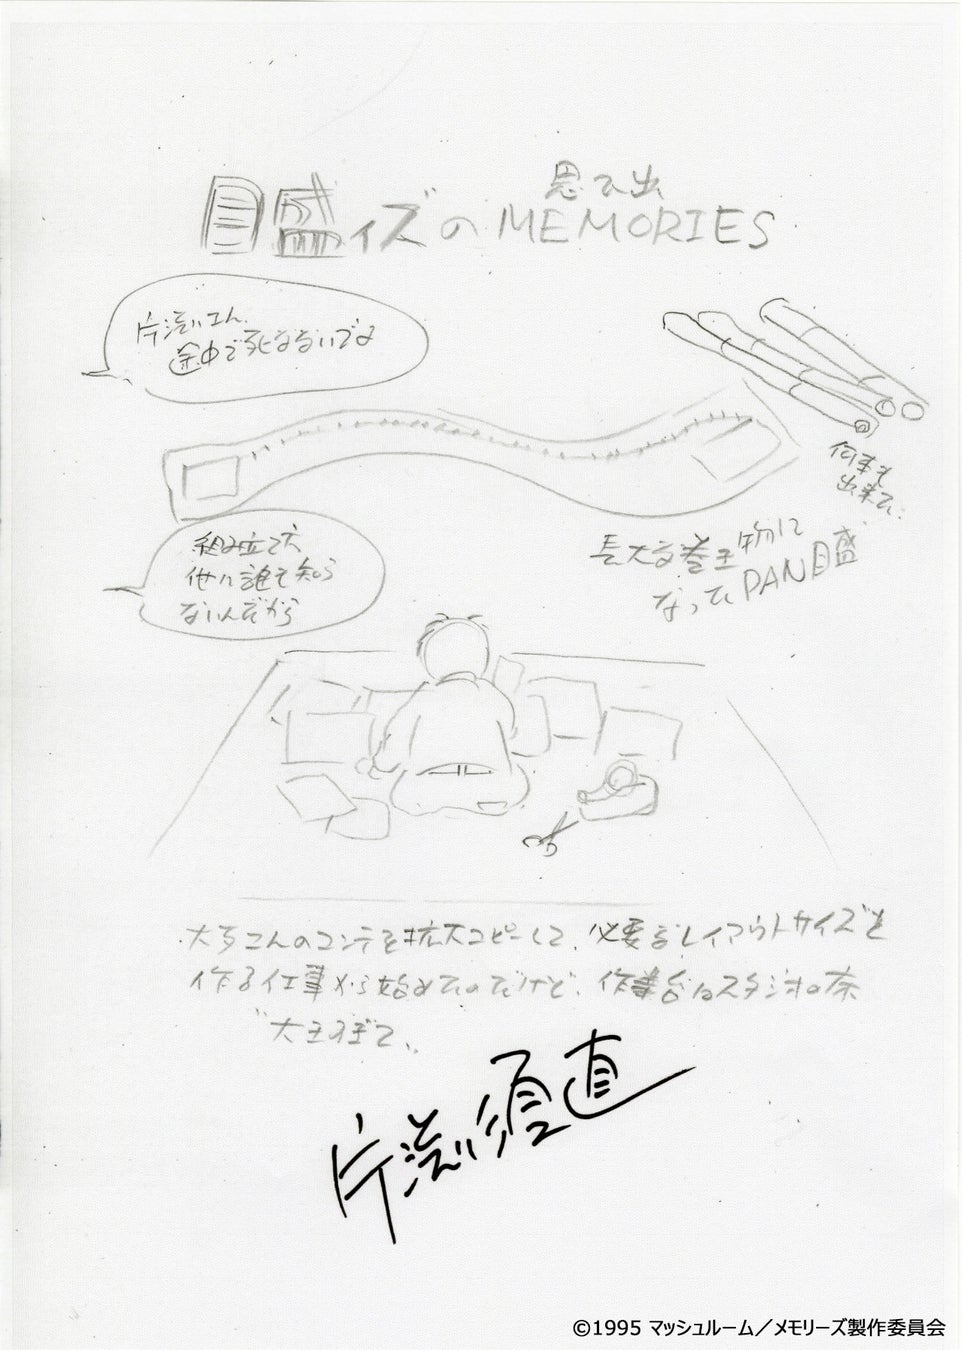 目盛ィズの思ひ出MEMORIES
片渕さん、
途中で死なないでな
何本も
出来て…
長大な巻き物に
なったPAN目盛
組み立て方
他に誰も知ら
ないんだから
大友さんのコンテを拡大コピーして、必要なレイアウトサイズを
作る仕事から始めたのだけど、作業台はスタジオの床
大きすぎて…
片渕須直
©1995 マッシュルーム／メモリーズ製作委員会